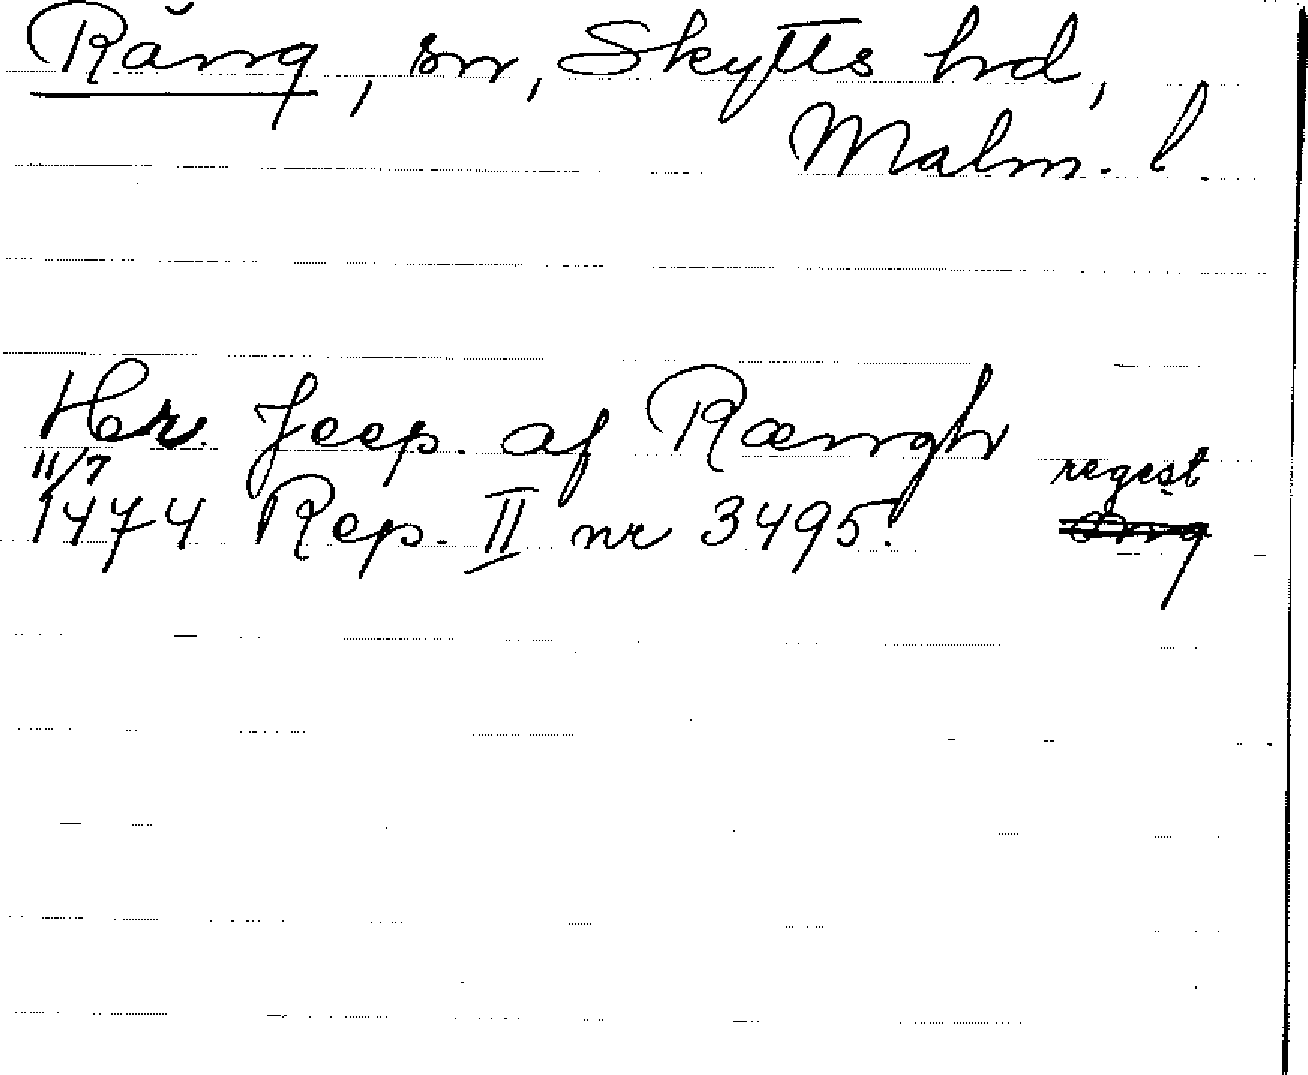 Räng, sn, Skytts hd,
Malm. l.
Her Jeep. af Rængh
11/7 regest
1474 Rep. II nr 3495. Orig